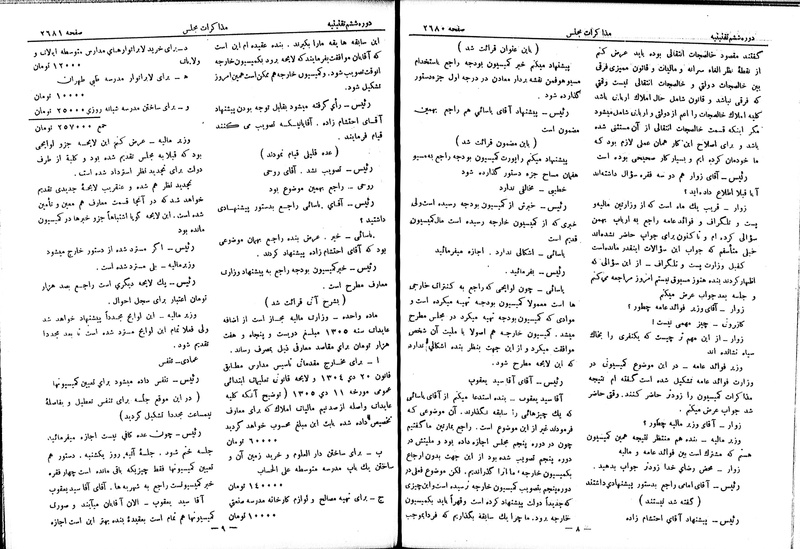 دوره ششم تقنینیه
مذاکرات مجلس
صفحه ۲۶۸۰
گفتند مقصود خالصجات انتقالی بوده باید عرض کنم
از نقطهٔ نظر الغاء سرانه و مالیات و قانون ممیزی فرقی
بین خالصجات دولتی و خالصجات انتقالی نیست وقتی
که فرقی نباشد و قانون شامل حال املاک اربابی باشد
کلیه املاک خالصجات را اعم از دولتی و اربابی شامل میشود
مگر اینکه قسمت خالصجات انتقالی از آن مستثنی شده
باشد و برای اصلاح این کار همان عملی لازم بود که
ما خودمان کرده ایم و بسیار کار صحیحی بوده است
رئیس ـ آقای زوار هم دو سه فقره سؤال داشته‌اند
آیا قبلا اطلاع داده‌اید؟
زوار ـ قریب یک ماه است که از وزارتین مالیه و
پست و تلگراف و فوائد عامه راجع به ارباب بهمن
سؤالی کرده ام و تا کنون برای جواب حاضر نشده‌اند
خیلی متأسفم که جواب این سؤالات اینقدر مانده است
کفیل وزارت پست و تلگراف ـ از این سؤالی که
اظهار کردند بنده هنوز مسبوق نیستم امروز مراجعه میکنم
و جلسه بعد جواب عرض میکنم
زوار ـ آقای وزیر فوائد عامه چطور؟
کازرونی ـ چیز مهمی نیست؟
زوار ـ از این مهم تر چیست که یکنفری را بخاک
سیاه نشانده اند
وزیر فوائد عامه ـ در این موضوع کمیسیونی در
وزارت فوائد عامه تشکیل شده است گفته‌ام نتیجه
مذاکرات کمیسیون را زودتر حاضر کنند. وقتی حاضر
شد جواب عرض میکنم.
زوار ـ آقای وزیر مالیه چطور؟
وزیر مالیه ـ بنده هم منتظر نتیجه همین کمیسیون
هستم که مشترک است بین فوائد عامه و مالیه
زوار ـ محض رضای خدا زودتر جواب بدهید.
رئیس ـ آقای امامی راجع بدستور پیشنهادی داشتند
( گفته شد نیستند )
رئیس ـ پیشنهاد آقای احتشام زاده
( باین عنوان قرائت شد )
پیشنهاد میکنم خبر کمیسیون بودجه راجع باستخدام
مسیو هوفمن نقشه بردار معادن در درجه اول جزء دستور
گذارده شود .
رئیس ـ پیشنهاد آقای یاسائی هم راجع بهمین
مضمون است
( باین مضمون قرائت شد )
پیشنهاد میکنم راپورت کمیسیون بودجه راجع به مسیو
هفمان مساح جزء دستور گذارده شود
خطیبی ـ مخالفی ندارد
رئیس ـ خبرش از کمیسیون بودجه رسیده است ولی
خبری که از کمیسیون خارجه رسیده است مال کمیسیون
قدیم است
یاسائی ـ اشکالی ندارد . اجازه میفرمائید
رئیس ـ بفرمائید .
یاسائی ـ چون لوایحی که راجع به کنترات خارجی
ها است معمولا کمیسیون بودجه تهیه میکرده است و
موادی که کمیسیون بودجه تهیه میکرد در مجلس مطرح
میشد . کمیسیون خارجه هم اصولا با ملیت آن شخص
موافقت میکرد و از این جهت بنظر بنده اشکالی ندارد
که این لایحه مطرح شود .
رئیس ـ آقای آقا سید یعقوب
آقا سید یعقوب ـ بنده استدعا میکنم از آقای یاسائی
که یک چیزهائی را سابقه نگذارند. آن موضوعی که
فرمودند غیر از این موضوع است. راجع بمارتین ما گفتیم
چون در دوره پنجم مجلس اجازه داده بود و ملیتش در
دوره پنجم تصویب شده بود از این جهت بدون ارجاع
بکمیسیون خارجه ما آنرا گذراندیم. لکن موضوع فعلی در
دوره پنجم بتصویب کمیسیون خارجه نرسیده است این چیزی
که جدیداً دولت پیشنهاد کرده است و قهراً باید بکمیسیون
خارجه برود. ما چرا یک سابقه بگذاریم که فردا بموجب
ـ ۸ ـ
دوره ششم تقنینیه
مذاکرات مجلس
صفحه ۲۶۸۱
این سابقه ها یقه مارا بگیرند . بنده عقیده ام این است
که آقایان موافقت بفرمایند که لایحه برود بکمیسیون خارجه
آنوقت تصویب شود. وکمیسیون خارجه هم ممکن است همین امروز
تشکیل شود .
رئیس ـ رأی گرفته میشود بقابل توجه بودن پیشنهاد
آقای احتشام زاده . آقایانیکه تصویب می کنند
قیام فرمایند .
( عده قلیلی قیام نمودند )
رئیس ـ تصویب نشد . آقای روحی
روحی ـ راجع بهمین موضوع بود
رئیس ـ آقای یاسائی راجع بدستور پیشنهادی
داشتید ؟
یاسائی ـ خیر . عرض بنده راجع بهمان موضوعی
بود که آقای احتشام زاده پیشنهاد کردند .
رئیس ـ خبر کمیسیون بودجه راجع به پیشنهاد وزارت
معارف مطرح است .
( بشرح آتی قرائت شد )
ماده واحده ـ وزارت مالیه مجاز است از اضافه
عایدات سنه ۱۳۰۵ مبلغ دویست و پنجاه و هفت
هزار تومان برای مقاصد معارفی ذیل بمصرف رساند.
ا ـ برای مخارج مقدماتی تأسیس مدارس مطابق
قانون ۲۰ دی ۱۳۰۴ و لایحه قانونی تعلیمات ابتدائی
عمومی مورخه ۱۱ دی ۱۳۰۵ ( توضیح آنکه کلیه
عایدات واصله از صد نیم مالیات املاک که برای معارف
تخصیص داده شده بابت این مبلغ محسوب خواهد گردید
۶۰۰۰۰ تومان
ب ـ برای ساختن دار العلوم و خرید زمین آن و
ساختن یک باب مدرسه متوسطه علی الحساب
۱۴۰۰۰۰ تومان
ج ـ برای تهیه مصالح و لوازم کارخانه مدرسه صنعتی
۱۰۰۰۰ تومان
د ـ برای خرید لابراتوارهای مدارس متوسطه ایالات و
ولایات ۱۲۰۰۰ تومان
ه ـ برای لابراتوار مدرسه طبی طهران
۱۰۰۰۰ تومان
و ـ برای ساختن مدرسه شبانه روزی ۲۵۰۰۰ تومان
جمع ۲۵۷۰۰۰ تومان
وزیر مالیه ـ عرض کنم این لایحه جزو لوایحی
بود که قبلا به مجلس تقدیم شده بود و کلیهٔ از طرف
دولت برای تجدید نظر استرداد شده است .
تجدید نظر هم شده و عنقریب لایحهٔ جدیدی تقدیم
خواهد شد که در آنجا قسمت معارف هم معین و تأمین
شده است. این لایحه گویا اشتباهاً جزو خبرها در کمیسیون
مانده بود
رئیس ـ اگر مسترد شده از دستور خارج میشود
وزیر مالیه ـ بلی مسترد شده است .
رئیس ـ یک لایحه دیگری است راجع بصد هزار
تومان اعتبار برای سجل احوال .
وزیر مالیه ـ این لوایح مجدداً پیشنهاد خواهد شد
ولی فعلا تمام این لوایح مسترد شده است تا بعد مجددا
عمادی ـ تنفس
رئیس ـ تنفس داده میشود برای تعیین کمیسیونها
( در این موقع جلسه برای تنفس تعطیل و بفاصلهٔ
نیمساعت مجدداً تشکیل گردید )
رئیس ـ چون عده کافی نیست اجازه میفرمائید.
جلسه ختم شود . جلسهٔ آتیه روز یکشنبه . دستور هم
تعیین کمیسیونها فقط چیزیکه باقی مانده است چهار فقره
خبر کمیسیونست راجع به شهریه ها. آقای آقا سید یعقوب
آقا سید یعقوب ـ الآن آقایان میآیند و صورت
کمیسیونها هم تمام است بعقیدهٔ بنده بهتر این است اجازه
ـ ۹ ـ